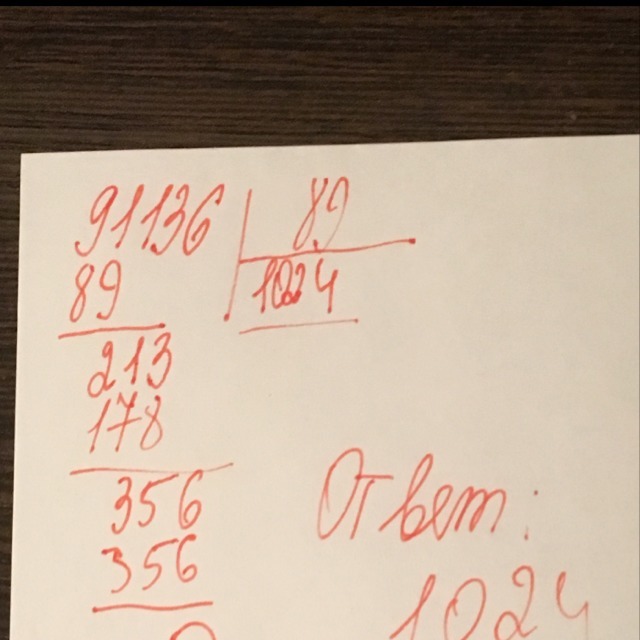 91136 | 89
89 1024
213
178
356
Ответ:
356
1024
0